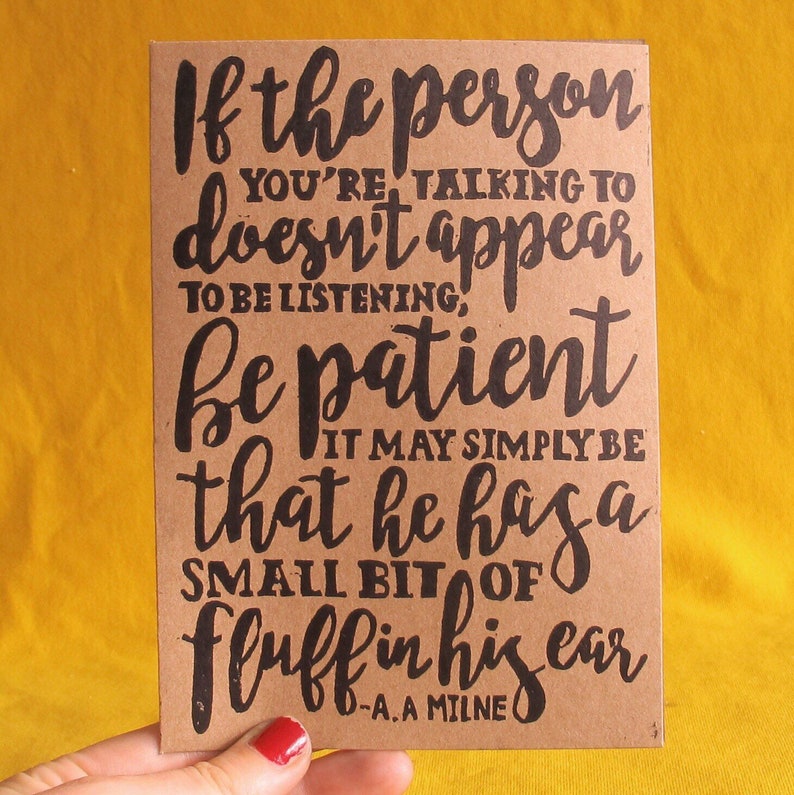 If the person
YOU'RE TALKING TO
doesn't appear
TO BE LISTENING,
be patient
IT MAY SIMPLY BE
that he has a
SMALL BIT OF
fluff in his ear
-A.A MILNE